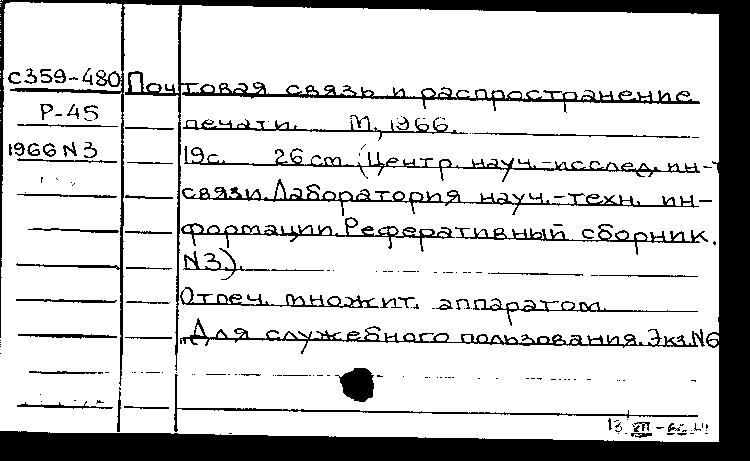 с359-480 Почтовая связь и распространение
Р-45 печати. М., 1966.
1966 N3 19с. 26 cm. (Центр. науч.-исслед. ин-т
связи. Лаборатория науч.-техн. ин-
формации. Реферативный сборник.
N3).
Отпеч. множит. аппаратом.
"Для служебного пользования. Экз. N6
13.